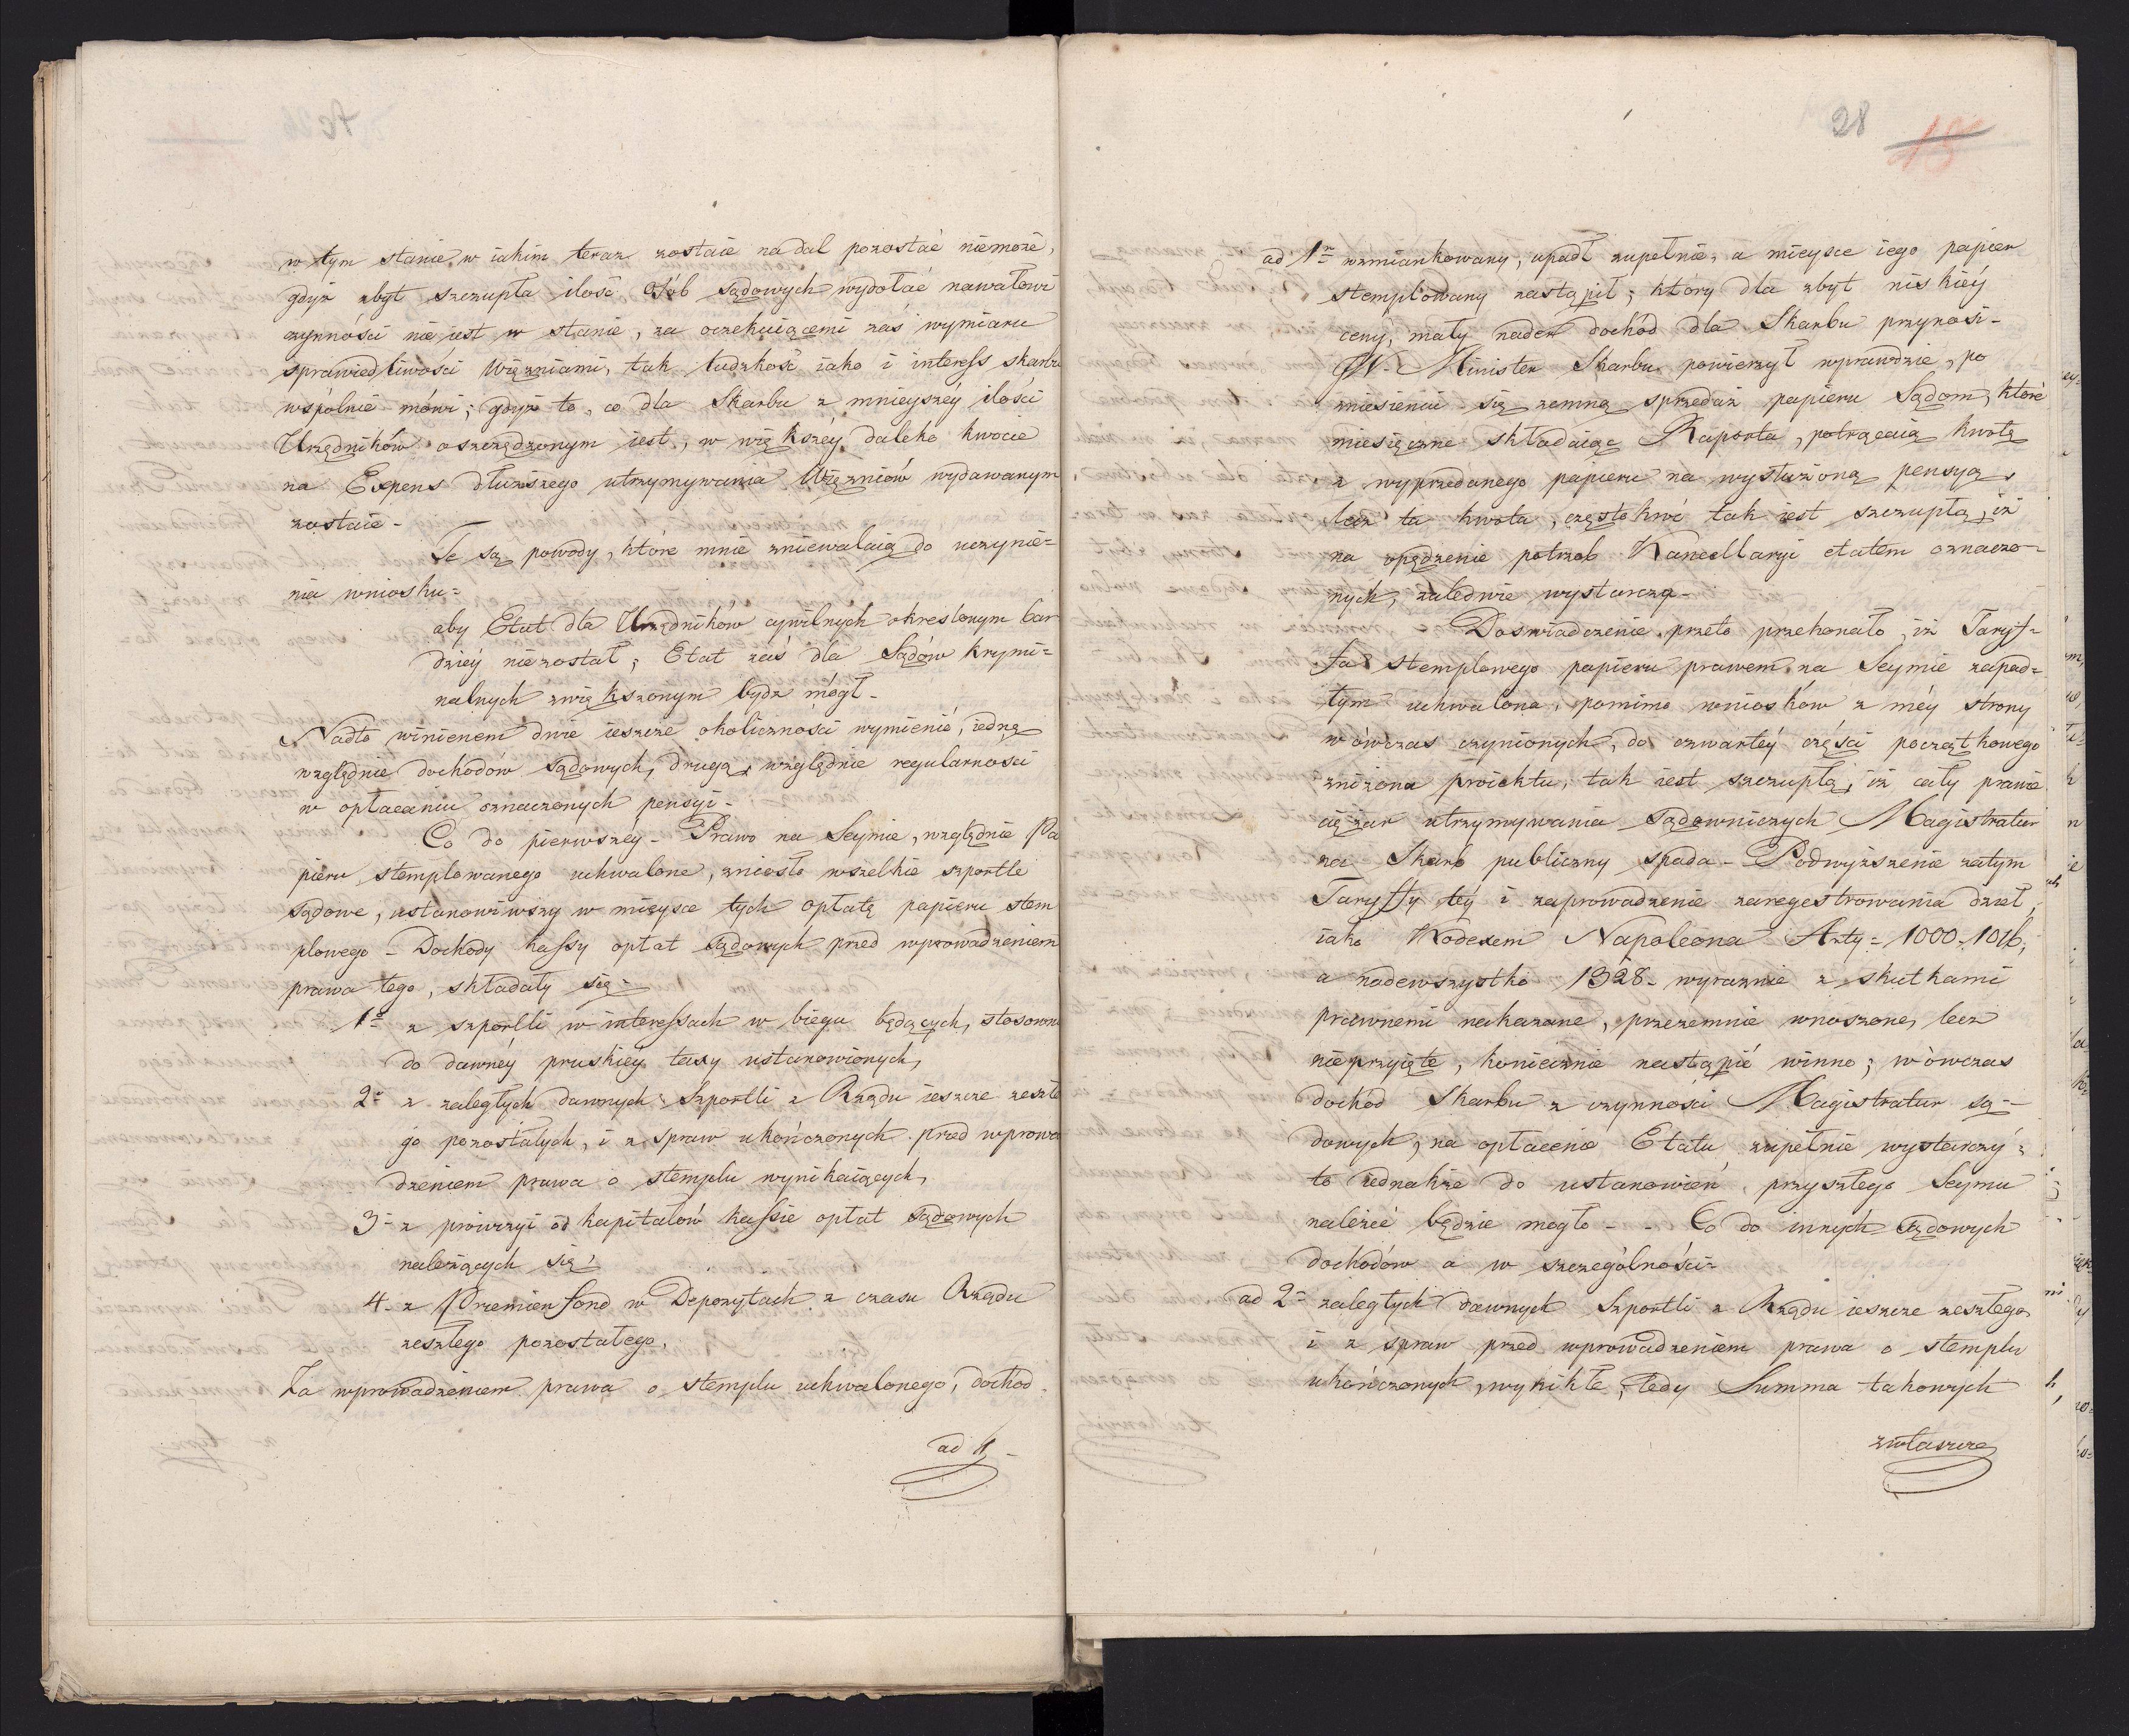 w tym stanie w iakim teraz zostaie nadal pozostać niemoże,
gdyż zbyt szczupła ilość Osób sądowych wydołać nawałowi
czynności nie iest w stanie, za oczekuiącemi zaś wymiaru
sprawiedliwości Więzniami, tak ludzkość iako i interess skarbu
wspólnie mówi; gdyż to, co dla Skarbu z mnieyszéy ilości
Urzędników oszczędzonym iest, w większéy daleko kwocie
na Expens dłuższego utrzymywania Więzniów wydawanym
zostaie -
Te są powody, które mnie zniewalaią do uczynie=
nia wniosku=
aby Etat dla Urzędników cywilnych okreslonym bar
dziéy niezostał; Etat zaś dla Sądów krymi=
nalnych zwiększonym bydz mógł -
Nadto winienem dwie ieszcze okoliczności wymienić, iedną
względnie dochodów sądowych, drugą, względnie regularności
w opłacaniu oznaczonych pensyi -
Co do pierwszéy - Prawo na Seymie, względnie Pa
pieru stemplowanego uchwalone, zniosło wszelkie szportle
sądowe, ustanowiwszy w mieysce tych opłatę papieru stem
plowego - Dochody kassy opłat sądowych przed wprowadzeniem
prawa tego, składały się -
1º z szportli w interessach w biegu będących, stosownie
do dawnéy pruskiéy taxy ustanowionych,
2º z zaległych dawnych Szportli z Rządu ieszcze zeszłe
go pozostałych, i z spraw ukończonych przed wprowa
dzeniem prawa o stemplu wynikaiących,
3º z prowizyi od kapitałów kassie opłat sądowych
należących się
4. z Przemien fond w Depozytach z czasu Rządu
zeszłego pozostałego.
Za wprowadzeniem prawa o stemplu uchwalonego, dochod
ad 1
28
18
ad 1º wzmiankowany, upadł zupełnie, a mieysce iego papier
stemplowany zastąpił; który dla zbyt niskiéy
ceny, mały nader dochód dla Skarbu przynosi -
JW. Minister Skarbu powierzył wprawdzie, po
zniesieniu się zemną sprzedaż papieru Sądom, które
miesięczne składaiąc Raporta, potrącaią kwotę
z wyprzedanego papieru na wysłużoną pensyą,
lecz ta kwota, częstokroć tak iest szczupłą, iż
na opędzenie potrzeb Kancellaryi etatem oznaczo-
nych, zaledwie wystarcza -
Doswiadczenie przeto przekonało, iż Taryf-
fa stemplowego papieru prawem na Seymie zapad-
łym uchwalona, pomimo wniosków z méy strony
wówczas czynionych, do czwartéy części początkowego
zniżona proiektu, tak iest szczupłą, iż cały prawie
ciężar utrzymywania sądowniczych Magistratur
na Skarb publiczny spada - Podwyższenie zatym
Taryffy téy i zaprowadzenie zaregestrowania dzieł,
iako Kodexem Napoleona Arty= 1000. 1016,
a nadewszystko 1328. wyraznie z skutkami
prawnemi nakazane, przezemnie wnoszone, lecz
nieprzyięte, koniecznie nastąpić winno; wówczas
dochód Skarbu z czynności Magistratur są-
dowych, na opłacenie Etatu zupełnie wystarczy;
to iednakże do ustanowień przyszłego Seymu
należeć będzie mogło - - Co do innych sądowych
dochodów a w szczególności=
ad 2º zaległych dawnych Szportli z Rządu ieszcze zeszłego
i z spraw przed wprowadzeniem prawa o stemplu
ukończonych, wynikłe, tedy Summa takowych
zwłaszcza